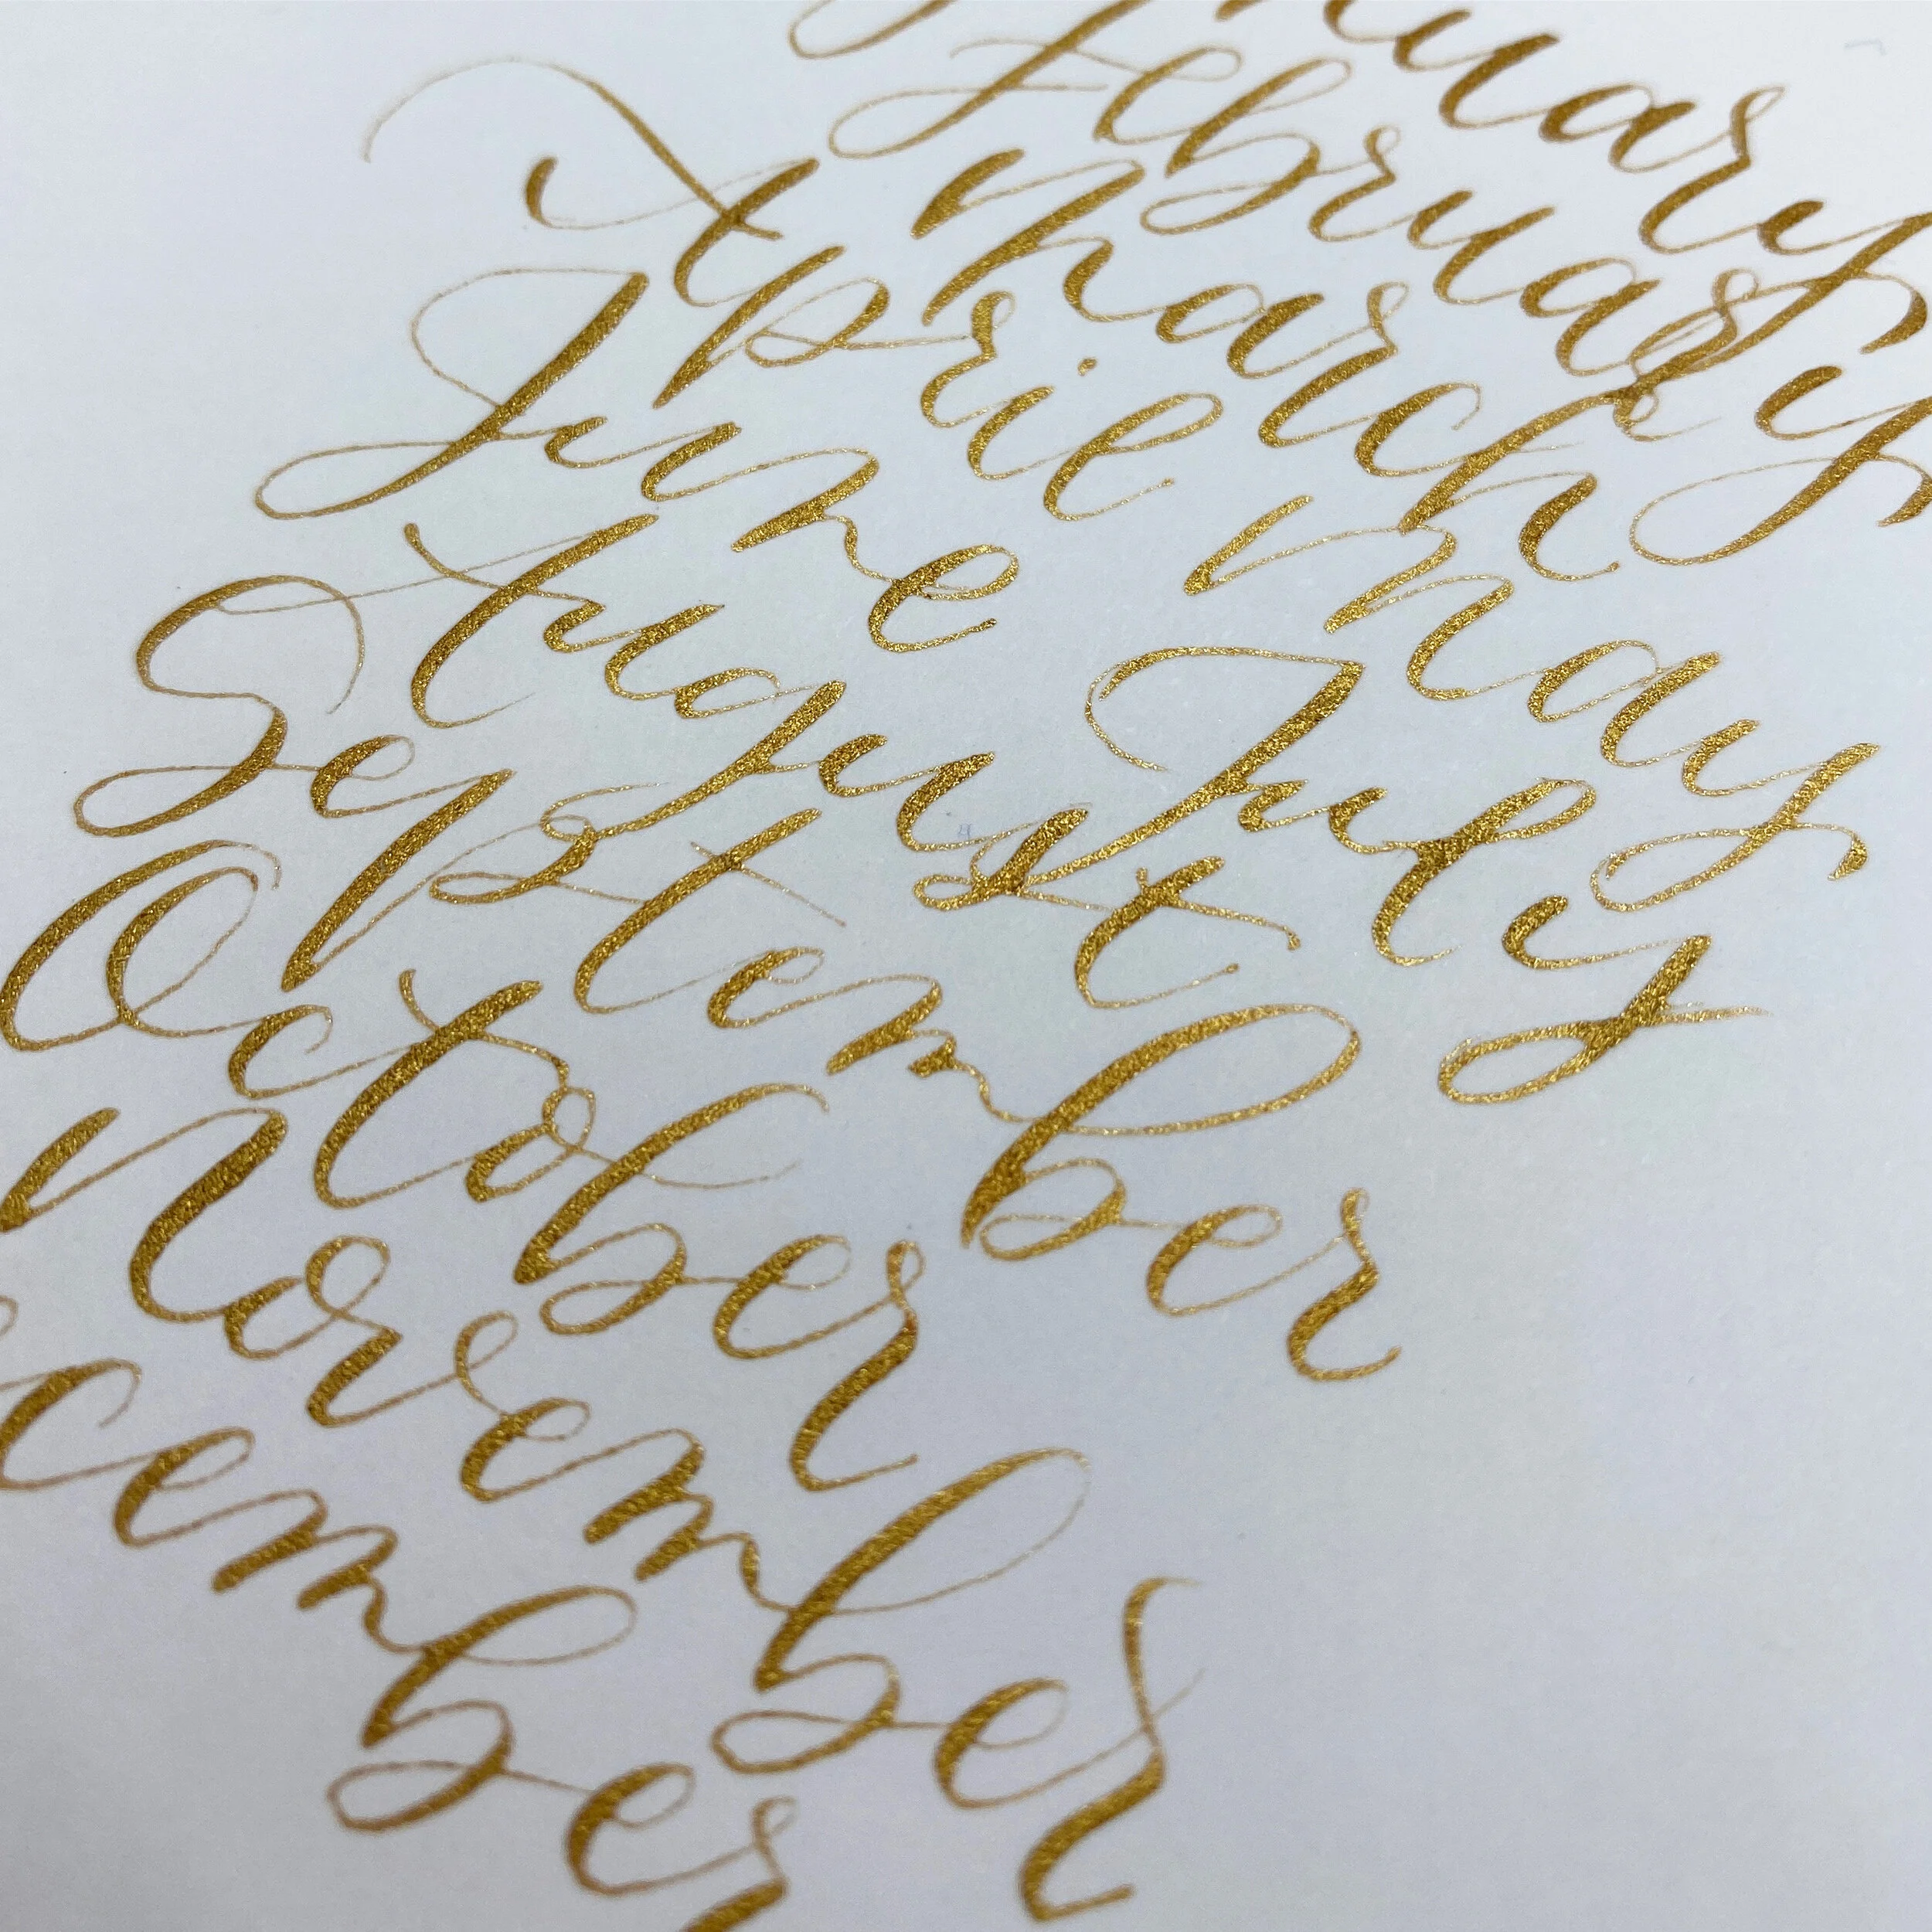 January
February
March
April May
June July
August
September
October
November
cember